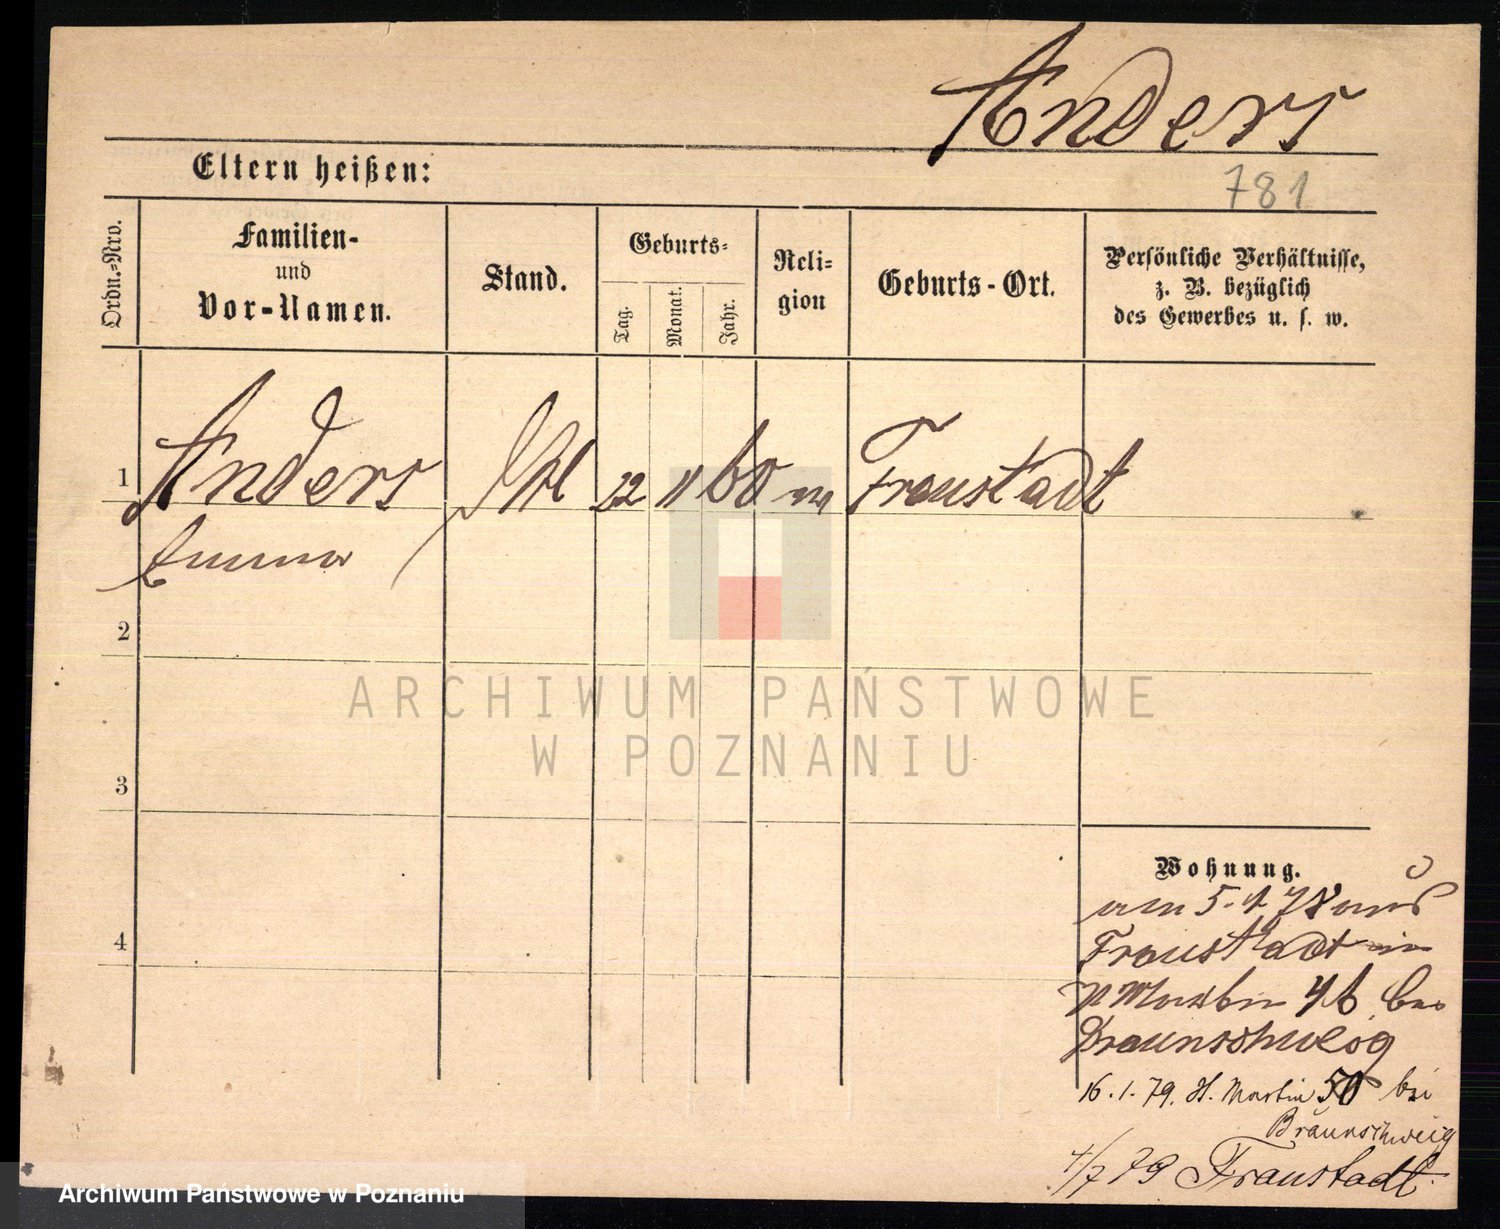 Anders
781
Eltern heißen:
Ordn.-Nro.
Familien-
und
Vor-Namen.
Stand.
Geburts-
Tag.
Monat.
Jahr.
Reli-
gion
Geburts-Ort.
Persönliche Verhältnisse,
z. B. bezüglich
des Gewerbes u. s. w.
1 Anders 22 11 60 Fraustadt
Emma
2
3
4
Wohnung.
am 5. 78 aus
Fraustadt in
Martin bei
Braunschweig
16.1.79. St. Martin 50 bei
Braunschweig
4/7 79 Fraustadt
ARCHIWUM PAŃSTWOWE
W POZNANIU
Archiwum Państwowe w Poznaniu